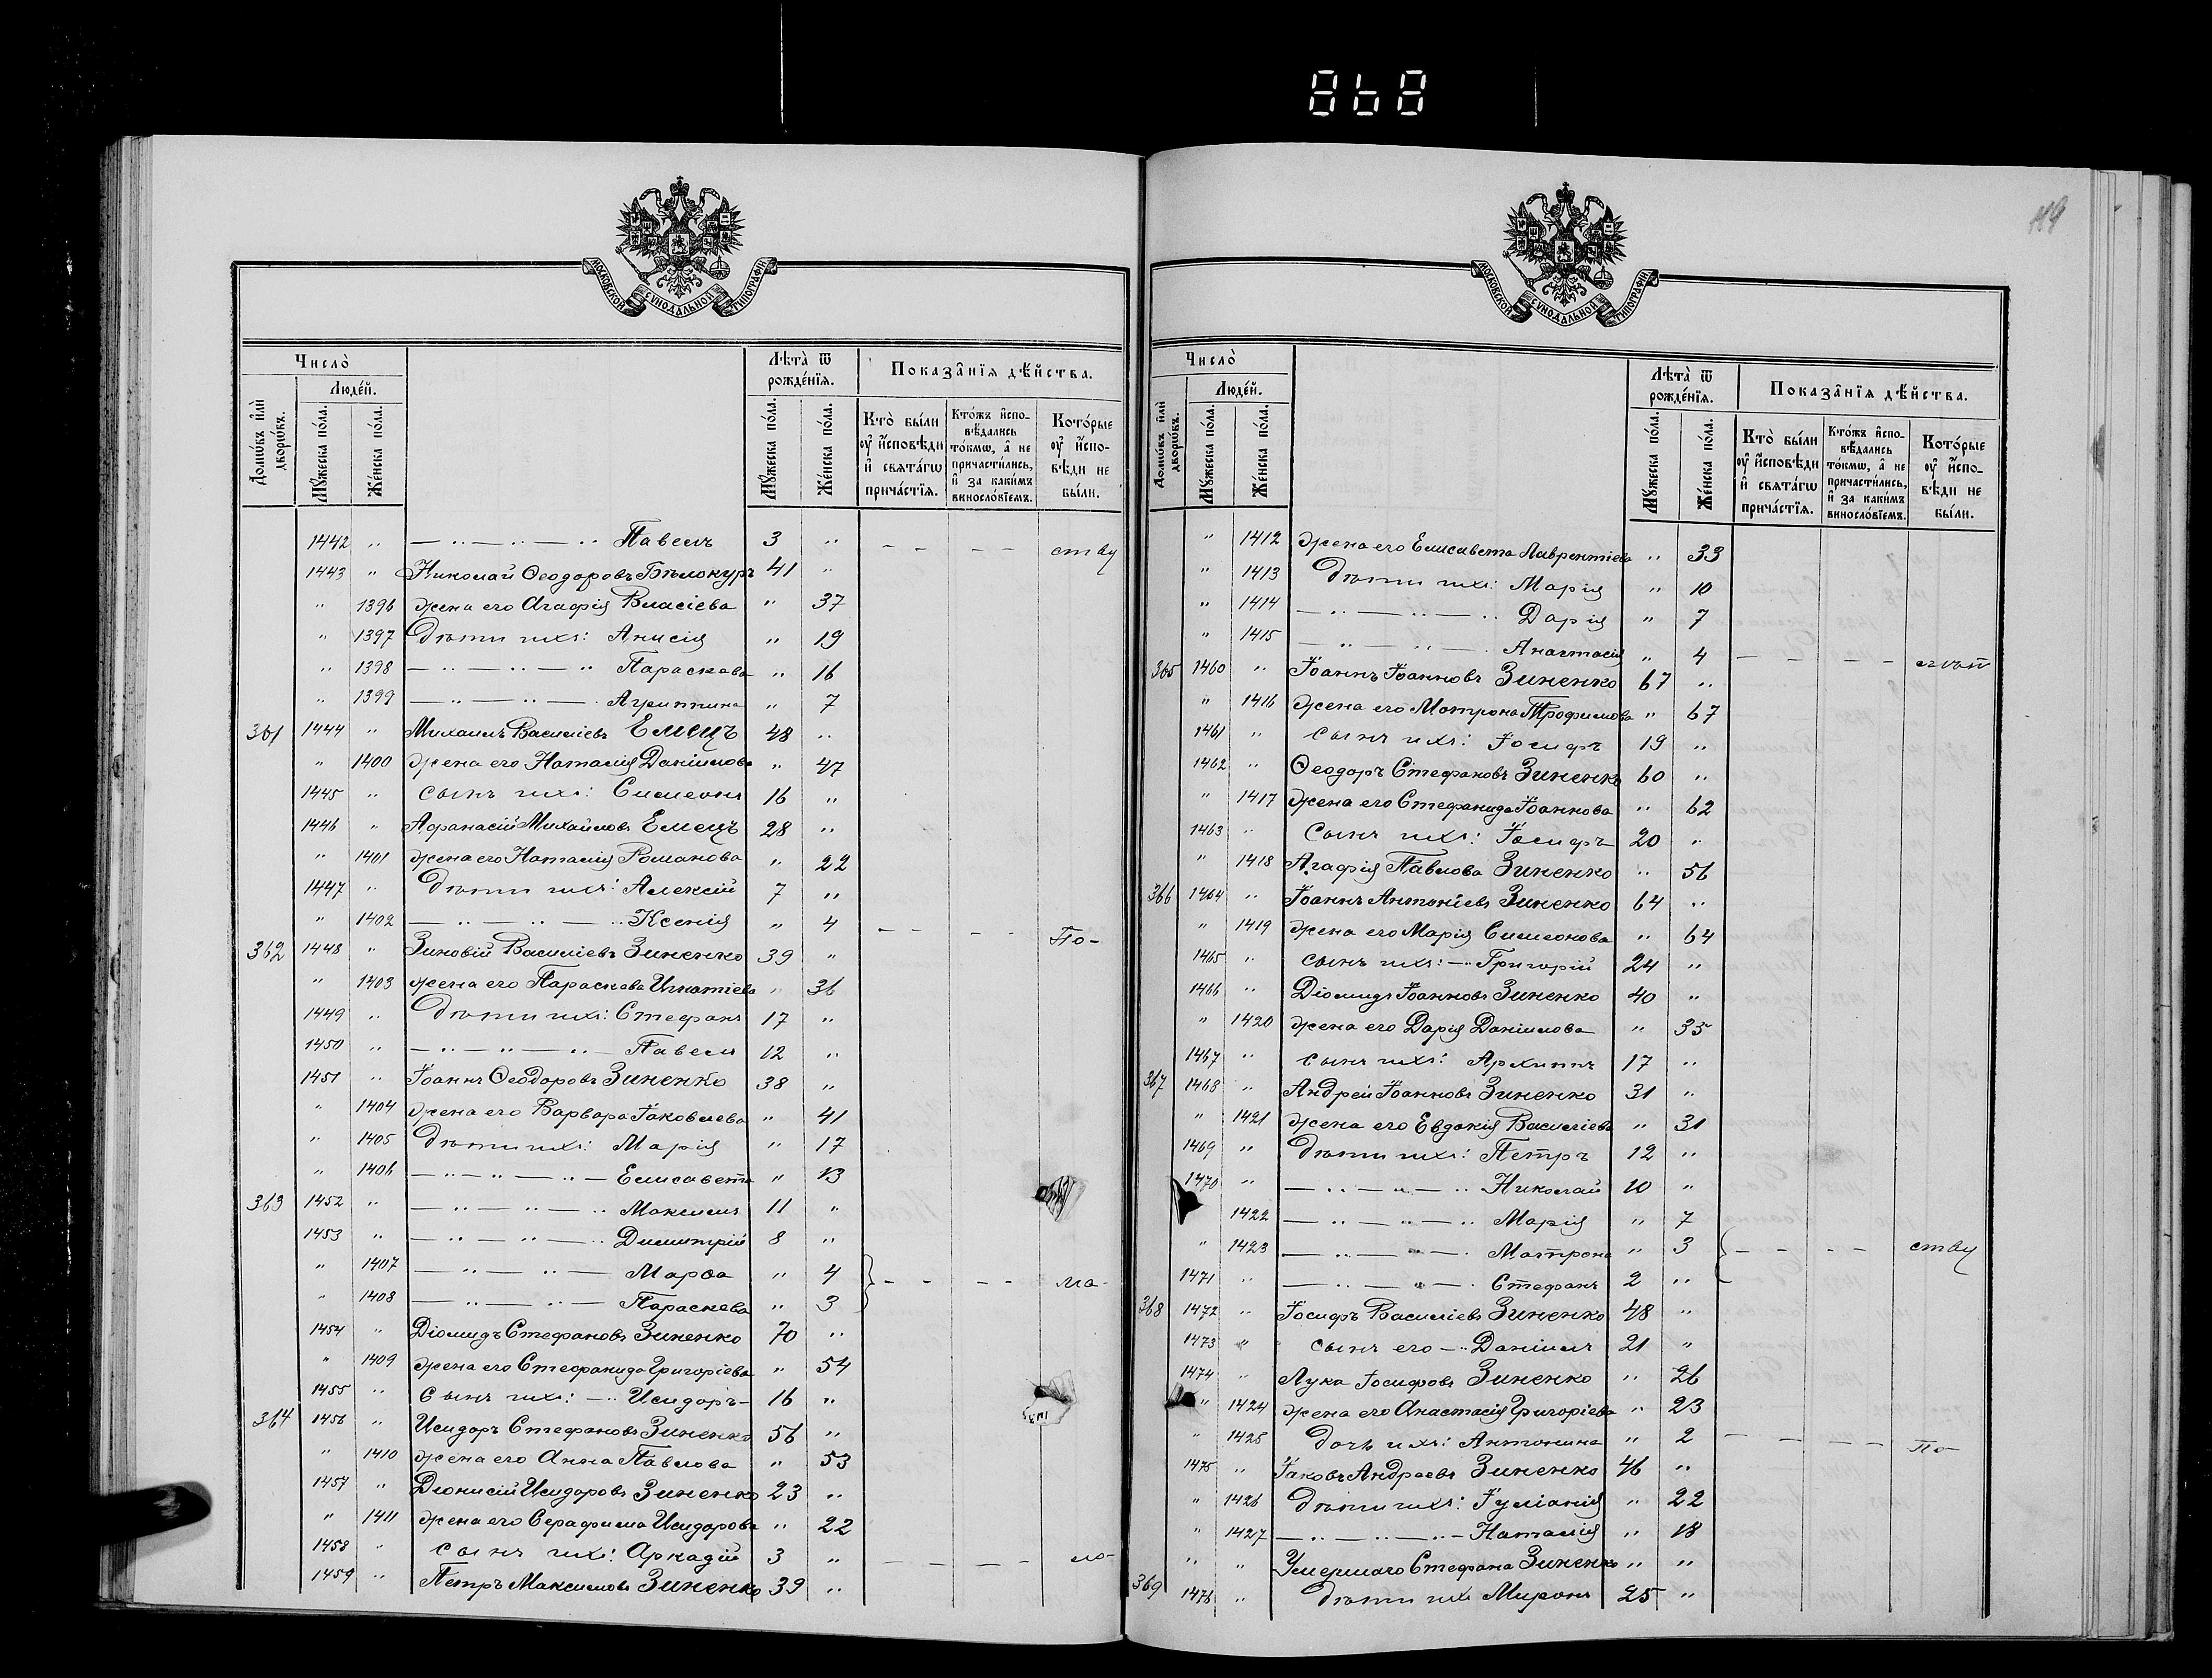 868
МОСКОВСКОЙ СУНОДАЛЬНОЙ ТИПОГРАФИИ
Число̀
Людей.
Домѡвъ и҆лѝ дворѡвъ.
Мꙋжеска по́ла.
Же́нска по́ла.
Лѣта̀ ѿ рожде́нїя.
Мꙋжеска по́ла.
Же́нска по́ла.
Показа̑нїя дѣ́йства.
Кто̀ бы́ли ᲂу҆ и҆́сповѣди и҆ свята́гѡ прича́стїя.
Кто́жъ и҆спо-вѣ́дались то́кмѡ, а҆ не причасти́лись, и҆ за каки́мъ винослові́емъ.
Кото́рые ᲂу҆ и҆́спо-вѣди не бы́ли.
1442 „ — „ — „ — „ Павелъ 3 „ – – – – ству
1443 „ Николай Ѳеодоровъ Бѣлокуръ 41 „
„ 1396 жена его Агафія Власіева „ 37
„ 1397 Дѣти ихъ: Анисія „ 19
„ 1398 — „ — „ — „ Параскева „ 16
„ 1399 — „ — „ — „ Агриппина „ 7
361 1444 „ Михаилъ Василіевъ Емецъ 48 „
„ 1400 жена его Наталія Даніилова „ 47
1445 „ сынъ ихъ: Симеонъ 16 „
1446 „ Аѳанасій Михаиловъ Емецъ 28 „
„ 1401 жена его Наталія Романова „ 22
1447 „ Дѣти ихъ: Алексій 7 „
„ 1402 — „ — „ — „ Ксенія „ 4 – – – – По-
362 1448 „ Зиновій Василіевъ Зиненко 39 „
„ 1403 жена его Параскева Игнатіева „ 36
1449 „ Дѣти ихъ: Стефанъ 17 „
1450 „ — „ — „ — „ — Павелъ 12 „
1451 „ Іоаннъ Ѳеодоровъ Зиненко 38 „
„ 1404 жена его Варвара Іаковлева „ 41
„ 1405 Дѣти ихъ: Марія „ 17
„ 1406 — „ — „ — „ — Елисавета „ 13
363 1452 „ — „ — „ — „ Максимъ 11 „
1453 „ — „ — „ — „ Димитрій 8 „
„ 1407 — „ — „ — Марѳа „ 4 – – – – ма-
„ 1408 — „ — „ — Параскева „ 3
1454 „ Діомидъ Стефановъ Зиненко 70 „
„ 1409 жена его Стефанида Григоріева „ 54
1455 „ сынъ ихъ: – „ Исидоръ – 16 „
364 1456 „ Исидоръ Стефановъ Зиненко 56 „
„ 1410 жена его Анна Павлова „ 53
1457 „ Діонисій Исидоровъ Зиненко 23 „
„ 1411 жена его Серафима Исидорова „ 22
1458 „ сынъ ихъ: Аркадій 3 „ – – – –
1459 „ Петръ Максимовъ Зиненко 39 „
119
МОСКОВСКОЙ СУНОДАЛЬНОЙ ТИПОГРАФИИ
Число̀
Людей.
Домѡвъ и҆лѝ дворѡвъ.
Мꙋжеска по́ла.
Же́нска по́ла.
Лѣта̀ ѿ рожде́нїя.
Мꙋжеска по́ла.
Же́нска по́ла.
Показа̑нїя дѣ́йства.
Кто̀ бы́ли ᲂу҆ и҆́сповѣди и҆ свята́гѡ прича́стїя.
Кто́жъ и҆спо-вѣ́дались то́кмѡ, а҆ не причасти́лись, и҆ за каки́мъ винослові́емъ.
Кото́рые ᲂу҆ и҆́спо-вѣди не бы́ли.
„ 1412 жена его Елисавета Лаврентіева „ 33
„ 1413 Дѣти ихъ: Марія „ 10
„ 1414 — „ — „ — „ Дарія „ 7
„ 1415 — „ — „ — „ Анастасія „ 4 – – – –
365 1460 „ Іоаннъ Іоанновъ Зиненко 67 „
„ 1416 жена его Матрона Трофимова „ 67
1461 „ сынъ ихъ: Іосифъ 19 „
1462 „ Ѳеодоръ Стефановъ Зиненко 60 „
„ 1417 жена его Стефанида Іоаннова „ 62
1463 „ Сынъ ихъ: Іосифъ 20 „
„ 1418 Агафія Павлова Зиненко „ 56
366 1464 „ Іоаннъ Антоніевъ Зиненко 64 „
„ 1419 жена его Марія Симеонова „ 64
1465 „ сынъ ихъ: – „ Григорій 24 „
1466 „ Діомидъ Іоанновъ Зиненко 40 „
„ 1420 жена его Дарія Даніилова „ 35
1467 „ сынъ ихъ: Архиппъ 17 „
367 1468 „ Андрей Іоанновъ Зиненко 31 „
„ 1421 жена его Евдокія Василіева „ 31
1469 „ Дѣти ихъ: Петръ 12 „
1470 „ — „ — „ — „ Николай 10 „
1422 — „ — „ — „ Марія „ 7
„ 1423 — „ — „ — „ Матрона „ 3 – – – – ству
1471 „ — „ — „ — „ Стефанъ 2 „
368 1472 „ Іосифъ Василіевъ Зиненко 48 „
1473 „ сынъ его – „ Даніилъ 21 „
1474 „ Лука Іосифовъ Зиненко „ 26
„ 1424 жена его Анастасія Григоріева „ 23
„ 1425 дочь ихъ: Антонина „ 2 – – – – По
1475 „ Іаковъ Андреевъ Зиненко 46 „
„ 1426 Дѣти ихъ: Іуліанія „ 22
„ 1427 — „ — „ — „ – Наталія „ 18
„ „ Умершаго Стефана Зиненко „ „
369 1476 „ Дѣти ихъ Миронъ 25 „